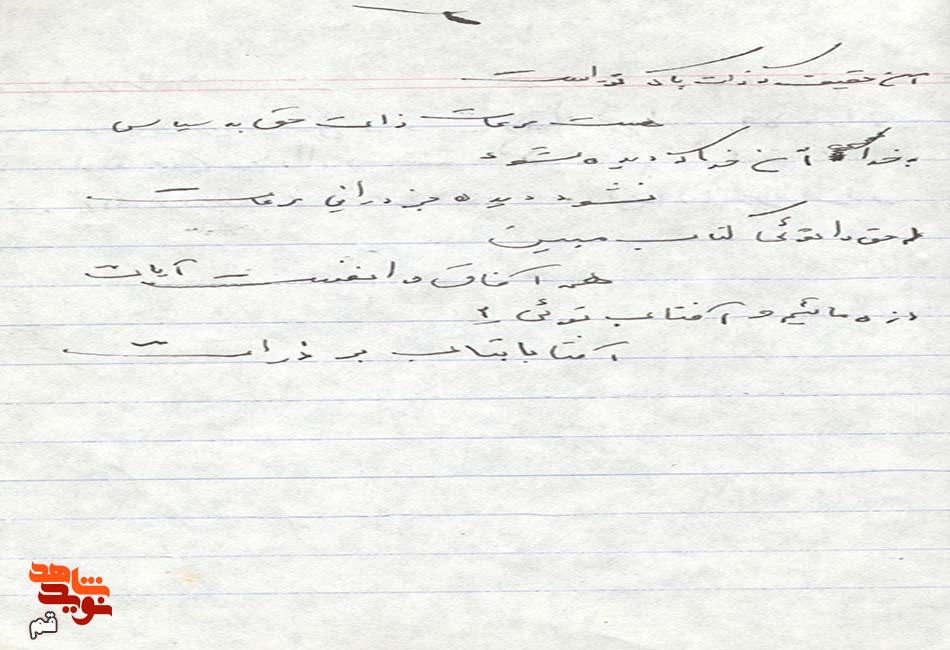 این حقیقت که ذات پاک تو است
هست مرآت ذات حق به سپاس
به خدا آن خدا که دیده شود
نشود دیده جز در این مرآت
حق را توئی کتاب مبین
همه آفاق و انفست آیات
ذره مائیم و آفتاب توئی
آفتابا بتاب بر ذرات
نوید شاهد
قم